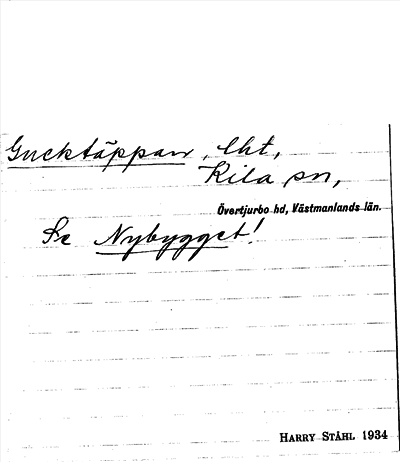 Gucktäppan, lht,
Kila sn,
Övertjurbo hd, Västmanlands län.
Se Nybygget!
HARRY STÅHL 1934